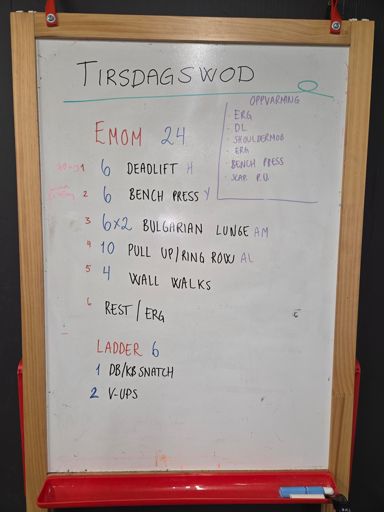 TIRSDAGSWOD
OPPVARMING
- ERG
- DL
- SHOULDERMOB
- ERG
- BENCH PRESS
- SCAP. P.U.
EMOM 24
1 6 DEADLIFT H
2 6 BENCH PRESS Y
3 6x2 BULGARIAN LUNGE AM
4 10 PULL UP/RING ROW AL
5 4 WALL WALKS
6 REST/ERG
LADDER 6
1 DB/KB SNATCH
2 V-UPS